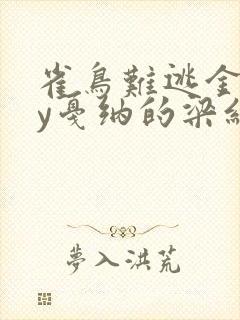 雀鳥難逃金
y戛纳的梁
夢入洪荒